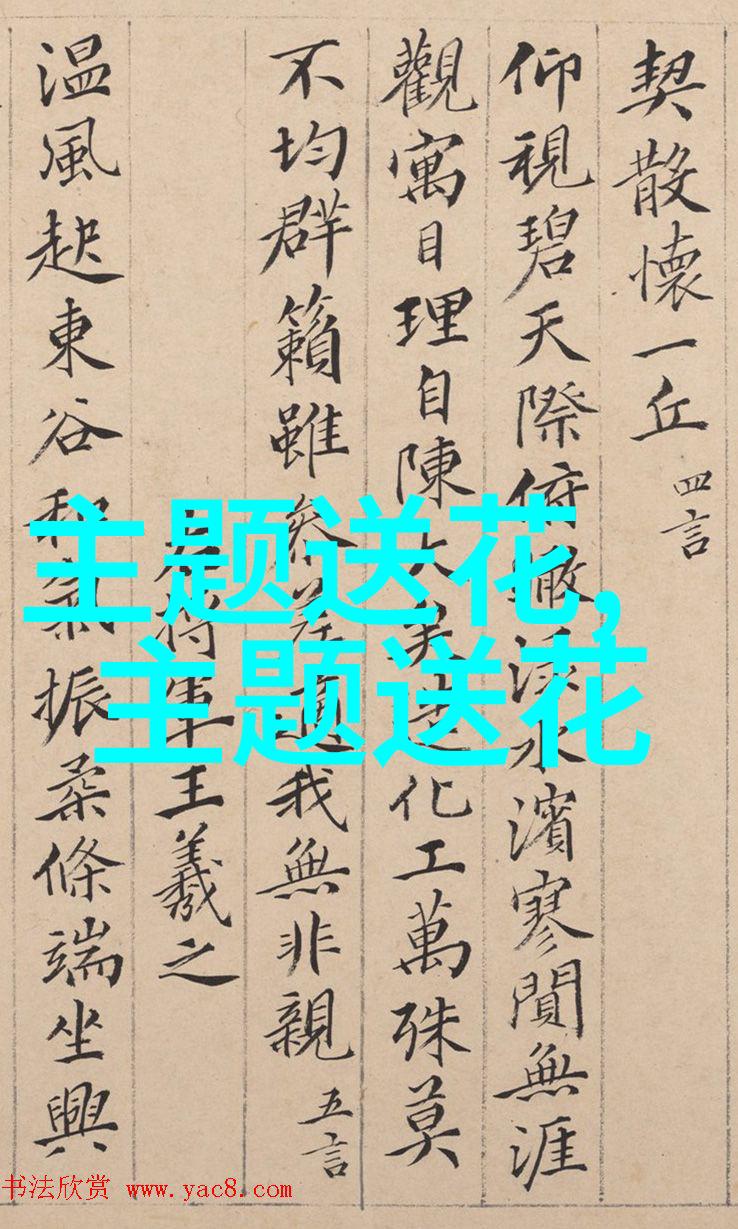 契散懷一丘 四言
仰視碧天際俯瞰淥水濱寥閴無涯
觀寓目理自陳大矣造化工萬殊莫
不均群籟雖參差適我無非親 五言
右將軍王羲之
溫風起東谷和氣振柔條端坐興
主题送花,
主题送花
书法欣赏 www.yac8.com